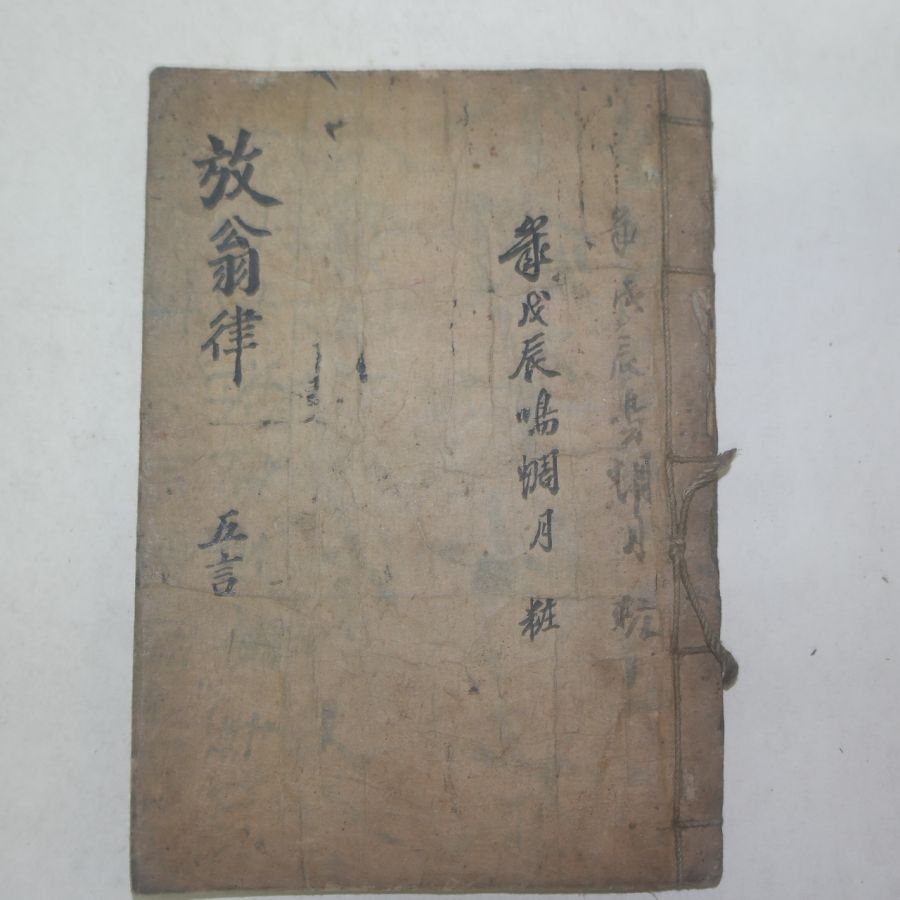 歲戊辰月
歲戊辰鳴蜩月 粧
放翁律 五言